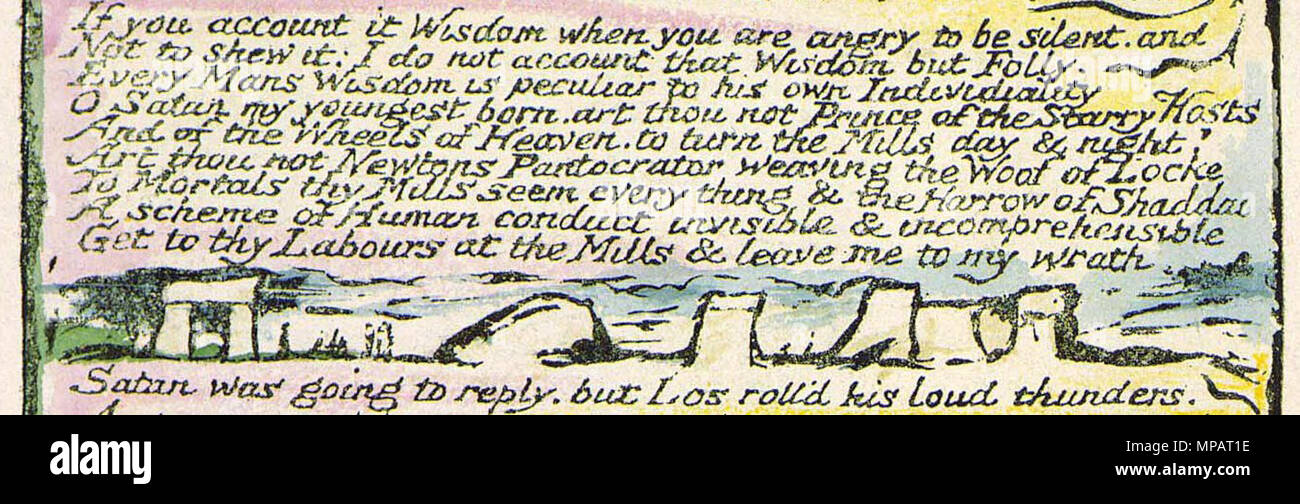 If you account it Wisdom when you are angry to be silent. and
Not to shew it: I do not account that Wisdom but Folly.
Every Mans Wisdom is peculiar to his own Individiality
O Satan my youngest born. art thou not Prince of the Starry Hosts
And of the Wheels of Heaven. to turn the Mills day & night?
Art thou not Newtons Pantocrator weaving the Woof of Locke
To Mortals thy Mills seem every thing & the Harrow of Shaddai
A scheme of Human conduct invisible & incomprehensible
Get to thy Labours at the Mills & leave me to my wrath.
Satan was going to reply. but Los roll'd his loud thunders.
alamy
Image ID: MPAT1E
www.alamy.com